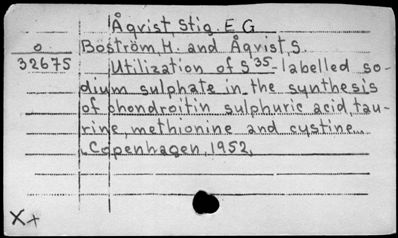 Åqvist, Stig. E G
o Boström, H. and Åqvist, S.
32675 Utilization of S35-labelled so-
dium sulphate in the synthesis
of chondroitin sulphuric acid, tau-
rine, methionine and cystine...
Copenhagen, 1952.
X+